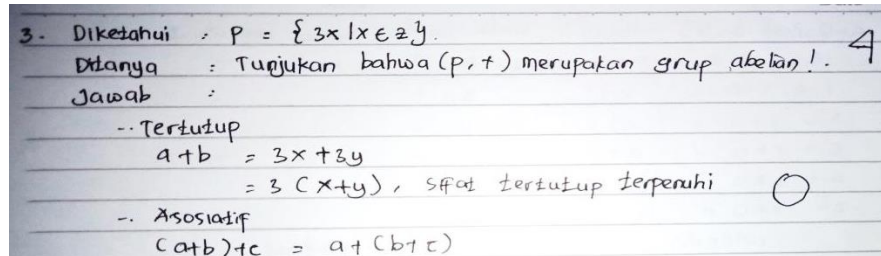 3. Diketahui : P = {3x | x ∈ z}.
Ditanya : Tunjukan bahwa (P, +) merupakan grup abelian!. 4
Jawab :
-. Tertutup
a + b = 3x + 3y
= 3 (x+y), sifat tertutup terpenuhi
-. Asosiatif
(a+b)+c = a + (b+c)